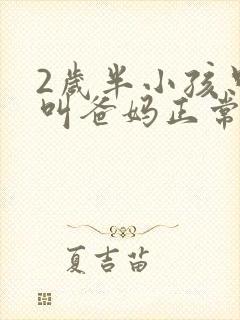 2歲半小孩
叫爸妈正常
夏吉苗